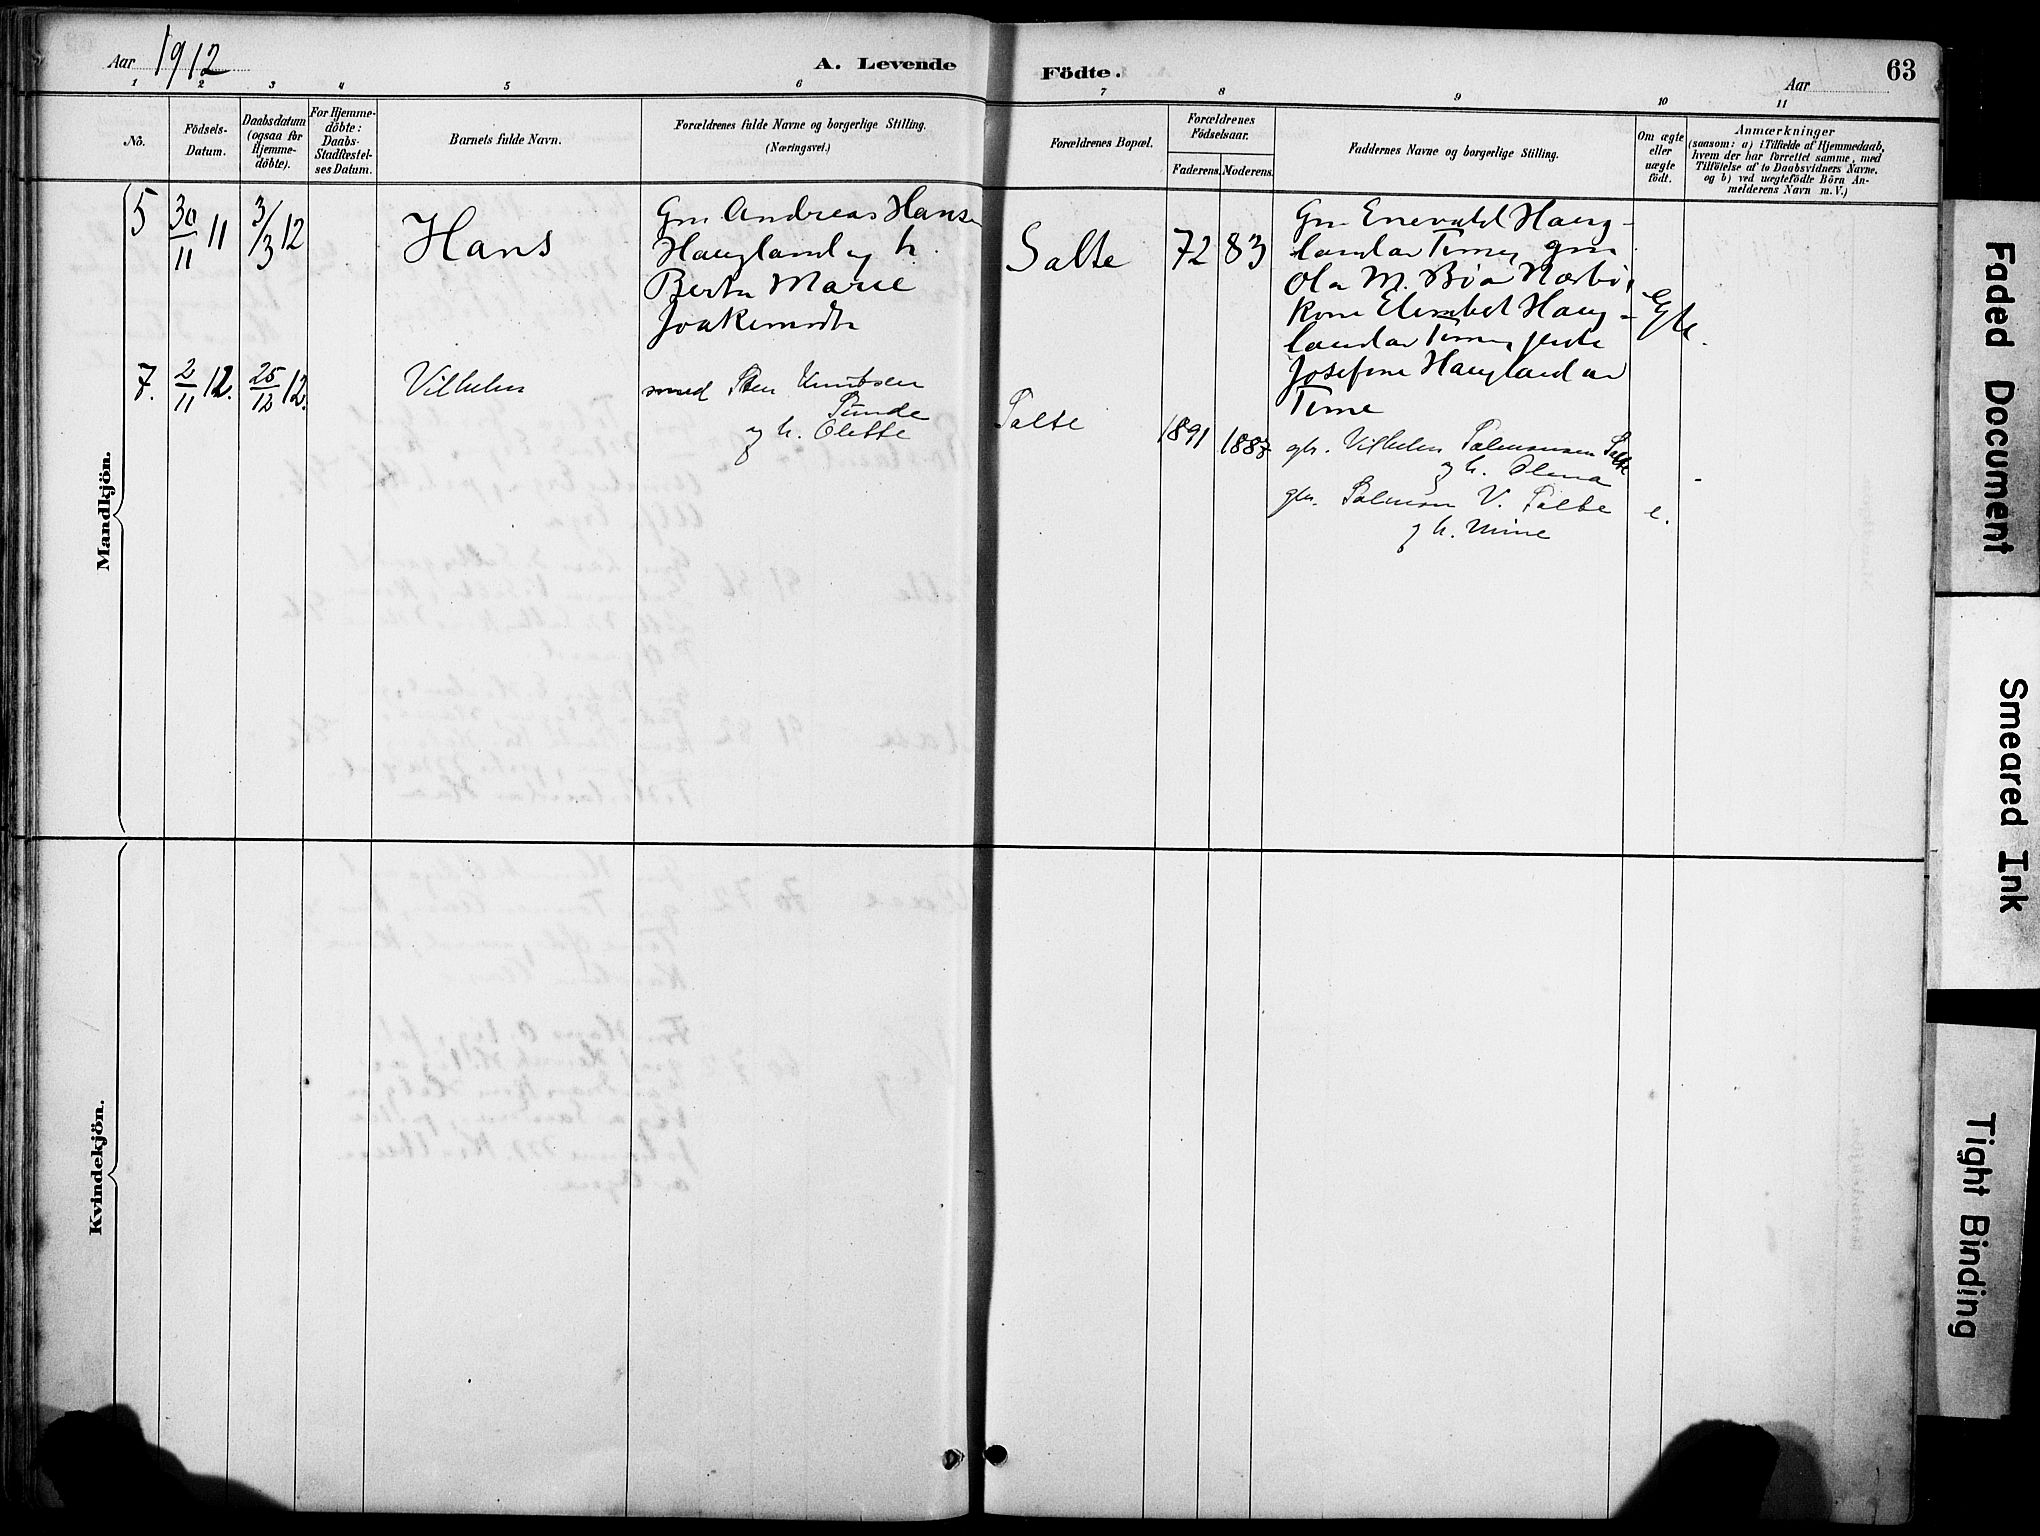 Aar 1912
A. Levende Födte.
Aar
63
1 2 3 4 5 6 7 8 9 10 11
No.
Födsels-
Datum.
Daabsdatum
(ogsaa for
Hjemme-
döbte).
For Hjemme-
döbte:
Daabs-
Stadfestel-
ses Datum.
Barnets fulde Navn.
Forældrenes fulde Navne og borgerlige Stilling.
(Næringsvei.)
Forældrenes Bopæl.
Forældrenes
Födselsaar.
Faderens. Moderens.
Faddernes Navne og borgerlige Stilling.
Om ægte
eller
uægte
födt.
Anmærkninger
(saasom: a) i Tilfælde af Hjemmedaab,
hvem der har forrettet samme, med
Tilföielse af to Daabsvidners Navne,
og b) ved uægtefödte Börn An-
melderens Navn m. V.)
Mandkjön.
5 30/11 11 3/3 12
Hans
Gm Andreas Hansen
Haugland og h.
Berta Marie
Salte
72 83
Gm Enevald Haug-
land av Time, gm
Ola M. Bøe Nærbø,
kone Elisabet Haug-
land av Time,
Josefine Haugland av
Time
Egte.
7. 2/11 12. 25/12 12.
Vilhelm
smed Sten Knutsen
Tunde
og h. Olette
Salte
1891 1887
gbr. Vilhelm Salmonsen Salte
og h. Olena
gbr. Salmon V. Salte
og h. Mine
e.
Kvindekjön.
Faded Document
Smeared Ink
Tight Binding